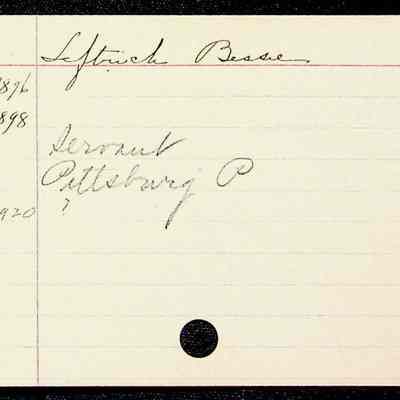 Leftwich Bessie
1896
1898
Servant
Pittsburg P
1920 ?